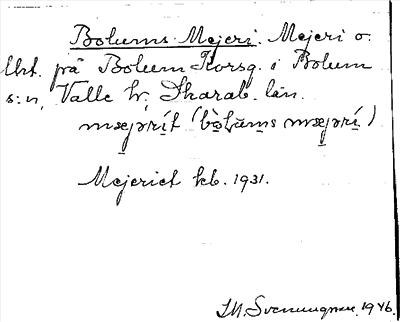 Bolums Mejeri. Mejeri o.
lht. på Bolum Korsg. i Bolum
s:n, Valle hd, Skarab. län.
mejərít (bòlums mejərí)
Mejeriet kb. 1931.
I.M. Svenungsson 1946.